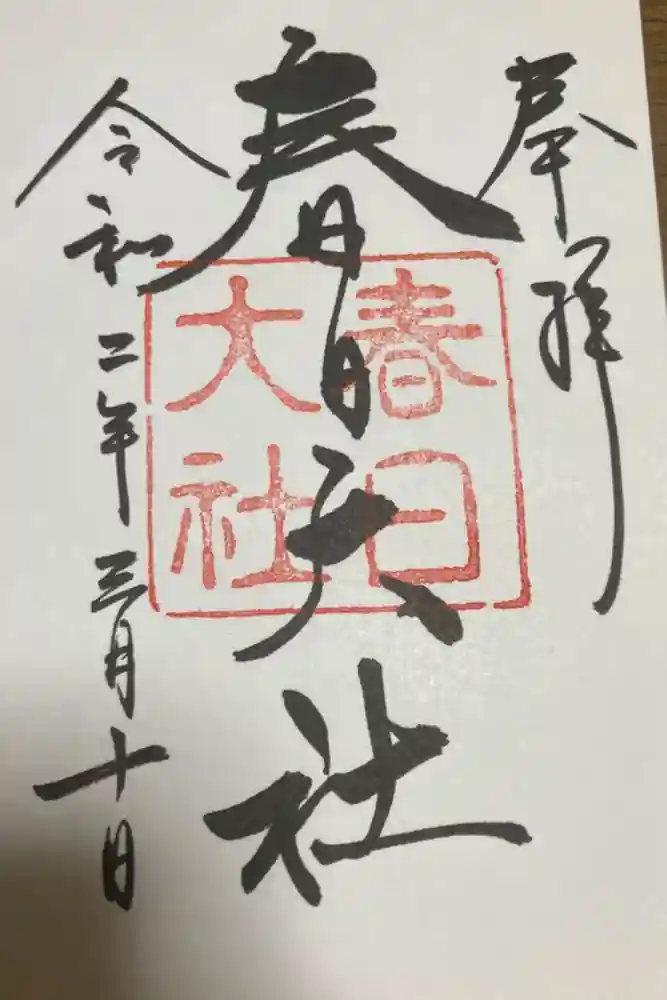 奉拝
春日大社
春日
大社
令和二年三月十日